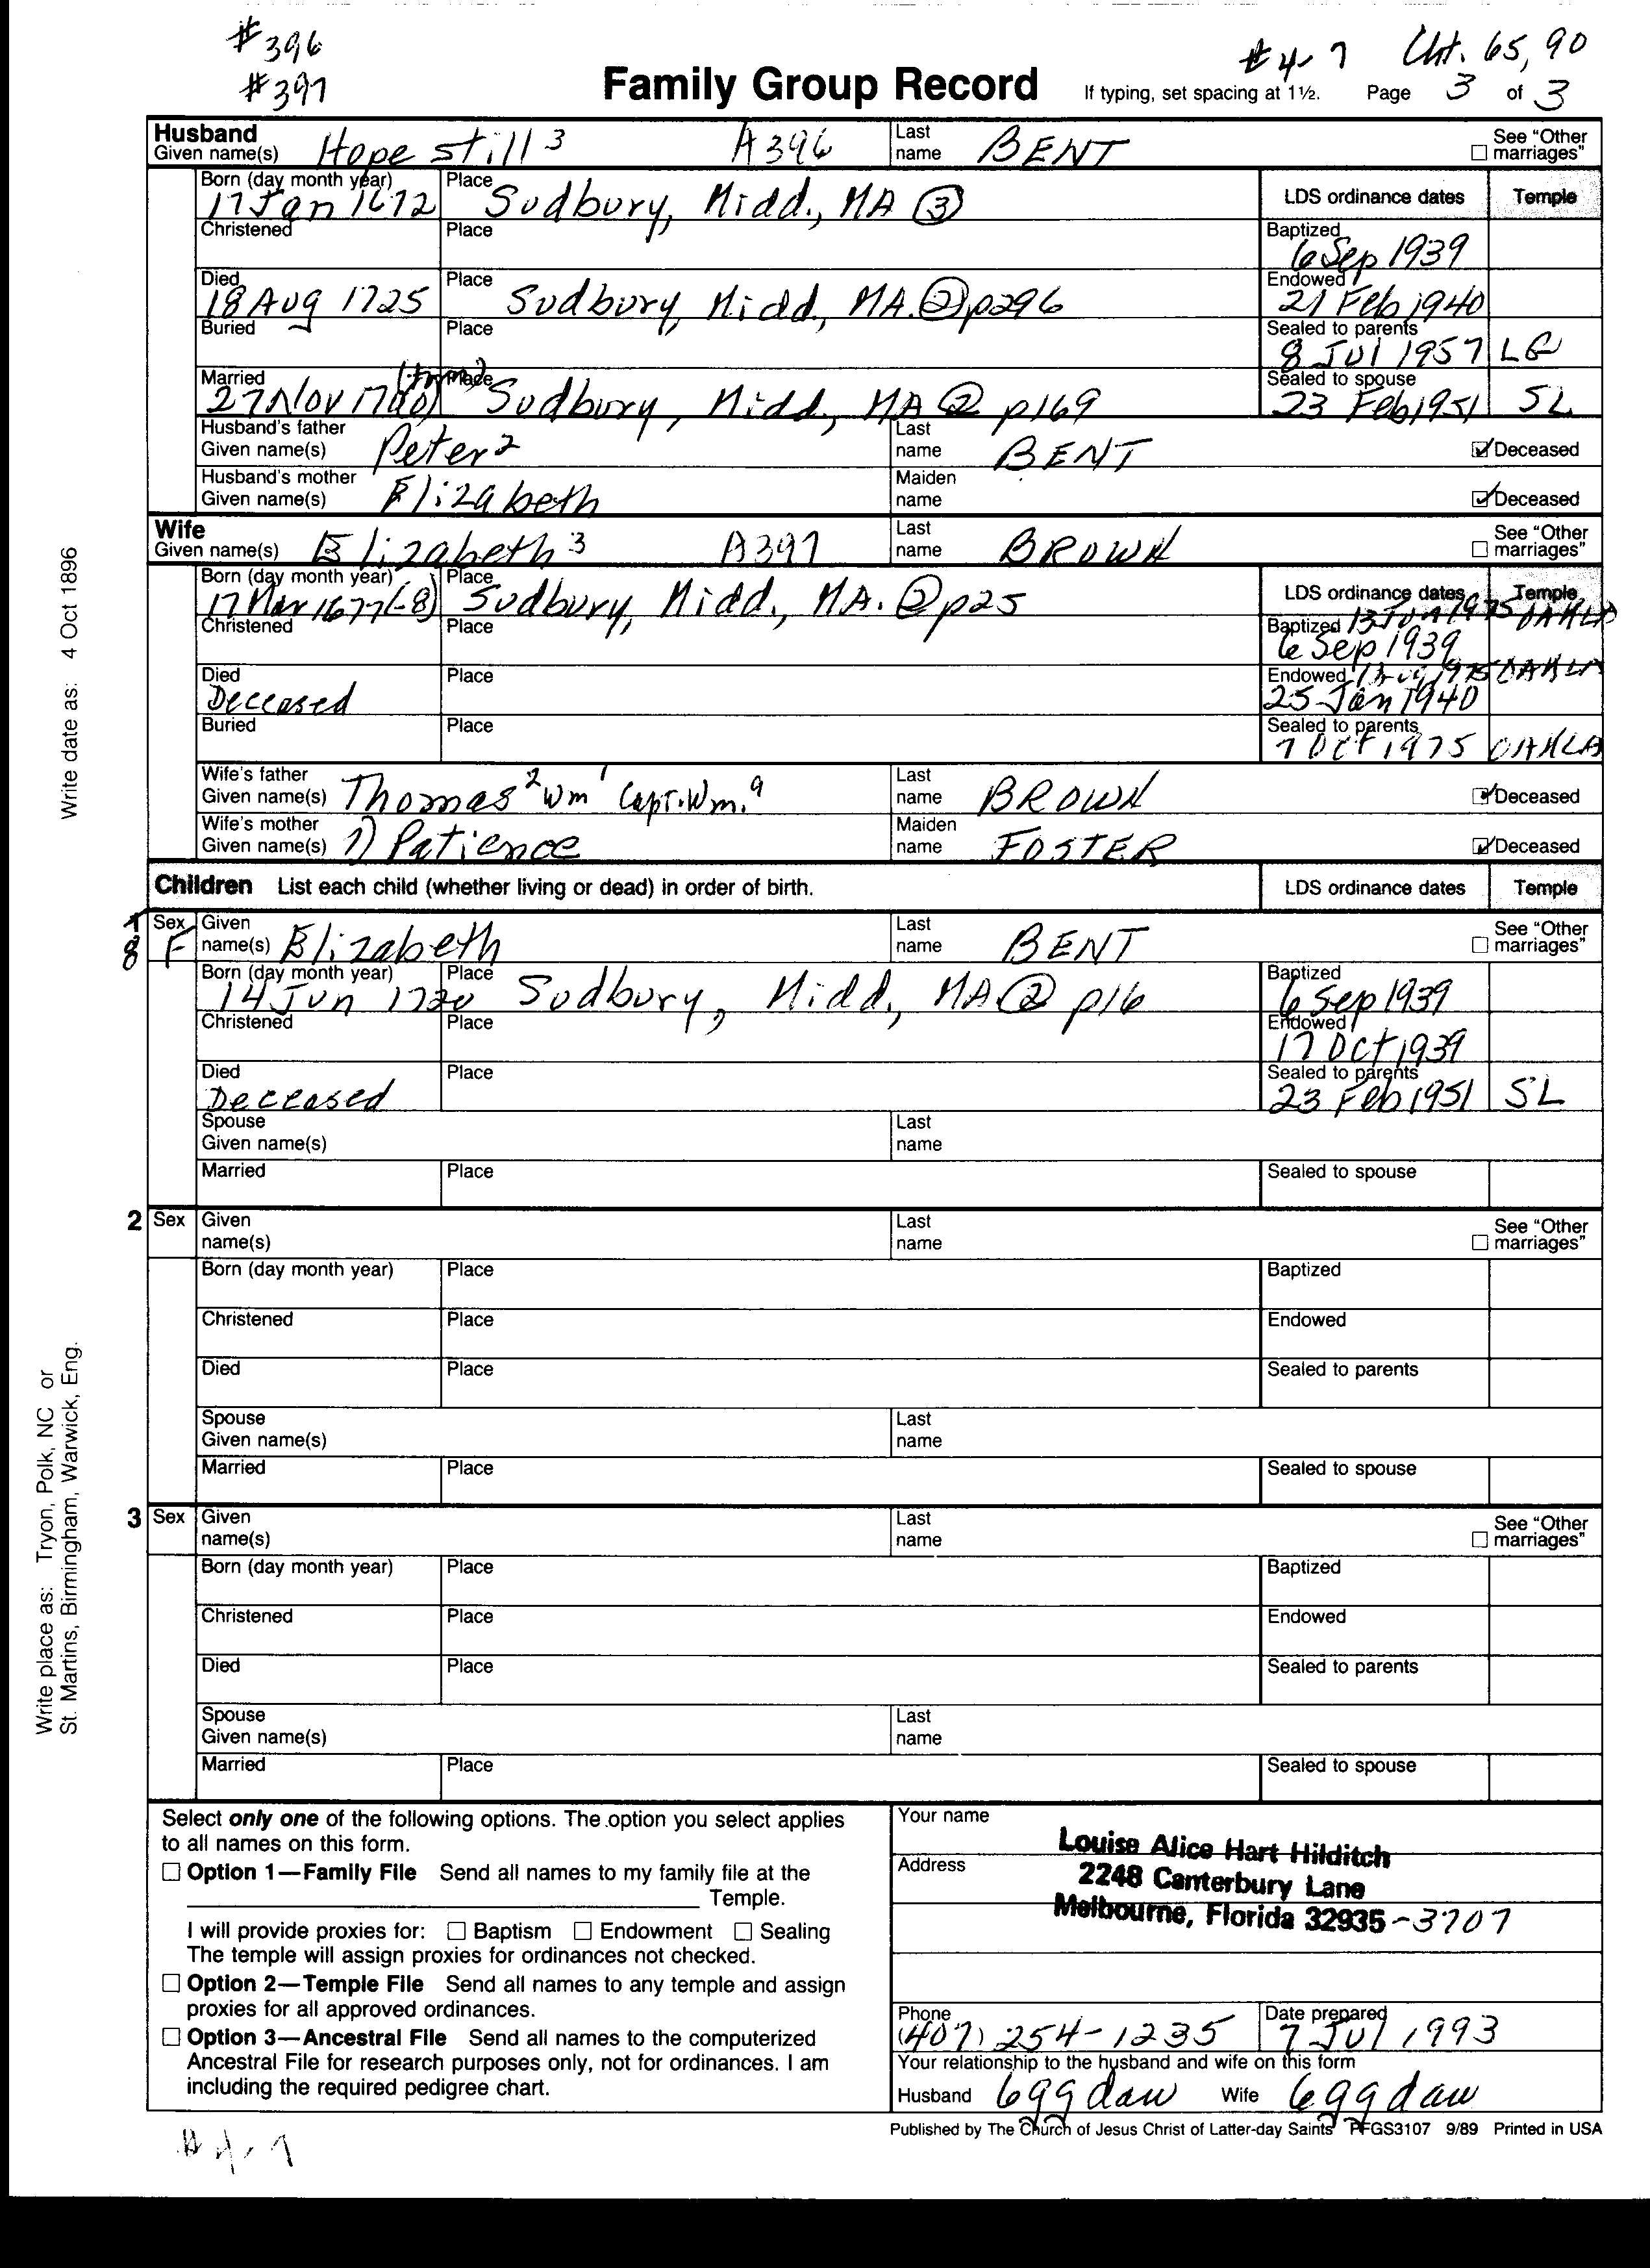 #396
#397
#4-7 Cht. 65, 90
Family Group Record If typing, set spacing at 1½. Page 3 of 3
Husband
Given name(s) Hopestill 3 A396 Last name BENT See "Other marriages"
Born (day month year) 17 Jan 1672 Place Sudbury, Midd., MA (3) LDS ordinance dates Temple
Christened Place Baptized 6 Sep 1939
Died 18 Aug 1725 Place Sudbury, Midd., MA. (2) p296 Endowed 21 Feb 1940
Buried Place Sealed to parents 8 Jul 1957 LG
Married 27 Nov 1700 Place Sudbury, Midd., MA (2) p169 Sealed to spouse 23 Feb 1951 SL
Husband's father Given name(s) Peter 2 Last name BENT Deceased
Husband's mother Given name(s) Elizabeth Maiden name Deceased
Wife
Given name(s) Elizabeth 3 A397 Last name BROWN See "Other marriages"
Born (day month year) 17 Mar 1677(-8) Place Sudbury, Midd., MA. (2) p25 LDS ordinance dates Temple
Christened Place Baptized 6 Sep 1939
Died Deceased Place Endowed 25 Jan 1940
Buried Place Sealed to parents 7 Oct 1975 OAKLA
Wife's father Given name(s) Thomas 2 Wm 1 Capt. Wm. 9 Last name BROWN Deceased
Wife's mother Given name(s) 1) Patience Maiden name FOSTER Deceased
Children List each child (whether living or dead) in order of birth. LDS ordinance dates Temple
1 8 Sex F Given name(s) Elizabeth Last name BENT See "Other marriages"
Born (day month year) 14 Jun 1720 Place Sudbury, Midd., MA (2) p16 Baptized 6 Sep 1939
Christened Place Endowed 17 Oct 1939
Died Deceased Place Sealed to parents 23 Feb 1951 SL
Spouse Given name(s) Last name
Married Place Sealed to spouse
2 Sex Given name(s) Last name See "Other marriages"
Born (day month year) Place Baptized
Christened Place Endowed
Died Place Sealed to parents
Spouse Given name(s) Last name
Married Place Sealed to spouse
3 Sex Given name(s) Last name See "Other marriages"
Born (day month year) Place Baptized
Christened Place Endowed
Died Place Sealed to parents
Spouse Given name(s) Last name
Married Place Sealed to spouse
Write date as: 4 Oct 1896
Write place as: Tryon, Polk, NC or
St. Martins, Birmingham, Warwick, Eng.
Select only one of the following options. The option you select applies
to all names on this form.
Option 1—Family File Send all names to my family file at the
Temple.
I will provide proxies for: Baptism Endowment Sealing
The temple will assign proxies for ordinances not checked.
Option 2—Temple File Send all names to any temple and assign
proxies for all approved ordinances.
Option 3—Ancestral File Send all names to the computerized
Ancestral File for research purposes only, not for ordinances. I am
including the required pedigree chart.
Your name Louise Alice Hart Hilditch
Address 2248 Canterbury Lane
Melbourne, Florida 32935-3707
Phone (407) 254-1235 Date prepared 7 Jul 1993
Your relationship to the husband and wife on this form
Husband 6gg dau Wife 6gg dau
Published by The Church of Jesus Christ of Latter-day Saints PFGS3107 9/89 Printed in USA
#4-7